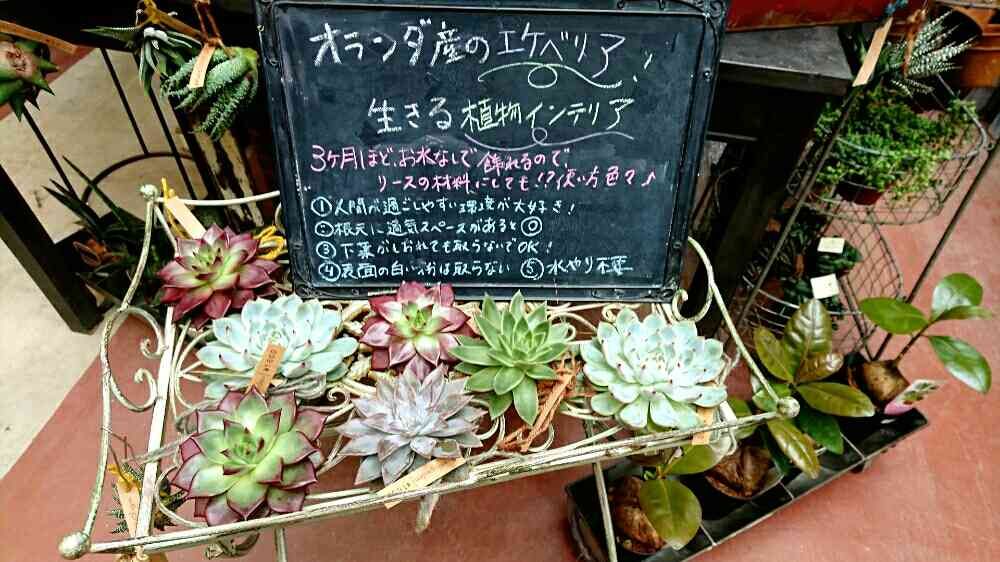 オランダ産のエケベリア!
生きる植物インテリア
3ケ月ほど、お水なしで飾れるので、
リースの材料にしても!?使い方色々♪
①人間が過ごしやすい環境が大好き!
②根元に通気スペースがあると◎
③下葉がしおれても取らないでOK!
④表面の白い粉は取らない ⑤水やり不要